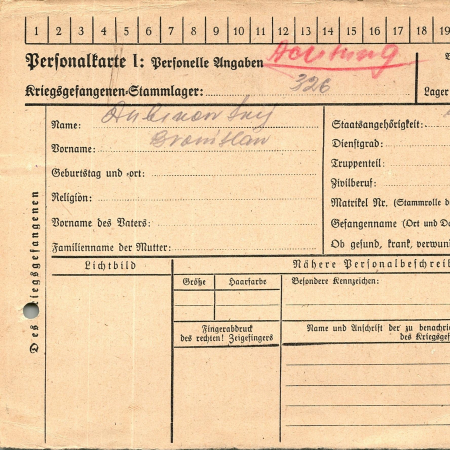 1 2 3 4 5 6 7 8 9 10 11 12 13 14 15 16 17 18 19
Personalkarte I: Personelle Angaben Achtung
Kriegsgefangenen-Stammlager: 326 Lager
Name:
Vorname: Bronislaw
Geburtstag und -ort:
Religion:
Vorname des Vaters:
Familienname der Mutter:
Staatsangehörigkeit:
Dienstgrad:
Truppenteil:
Zivilberuf:
Matrikel Nr. (Stammrolle d
Gefangenname (Ort und Da
Ob gesund, krank, verwun
Des Kriegsgefangenen
Lichtbild
Nähere Personalbeschrei
Größe Haarfarbe Besondere Kennzeichen:
Fingerabdruck
des rechten! Zeigefingers
Name und Anschrift der zu benachri
des Kriegsgef